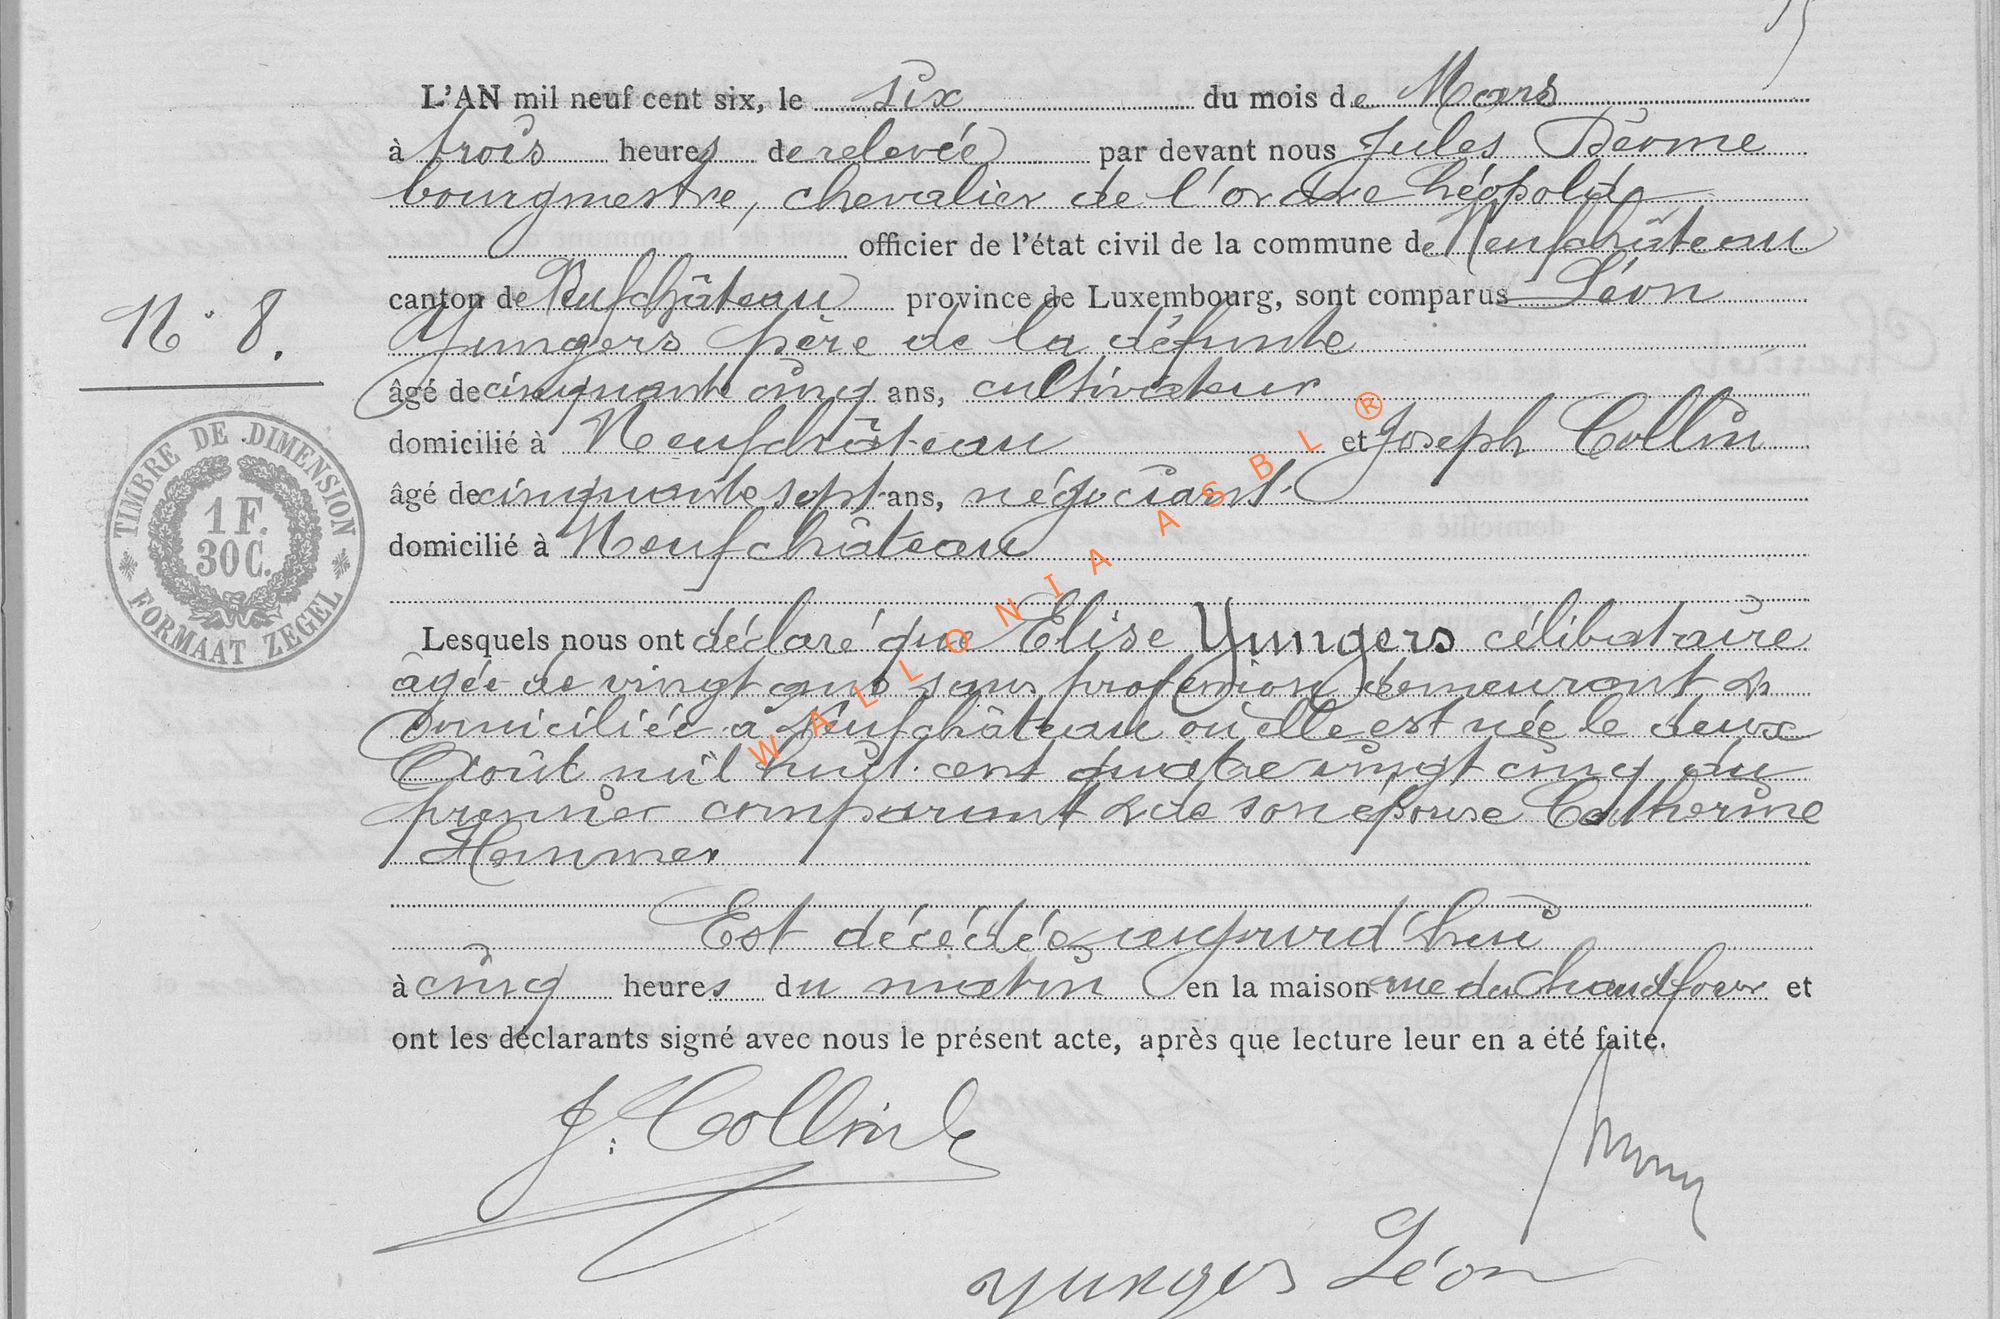 L'AN mil neuf cent six, le six du mois de Mars
à trois heures de relevée par devant nous Jules Dérome
bourgmestre, chevalier de l'ordre Léopold
officier de l'état civil de la commune de Neufchâteau
canton de Neufchâteau province de Luxembourg, sont comparus Léon
Yungers père de la défunte
âgé de cinquante cinq ans, cultivateur
domicilié à Neufchâteau et Joseph Collin
âgé de cinquante sept ans, négociant
domicilié à Neufchâteau
Lesquels nous ont déclaré que Elise Yungers célibataire
âgée de vingt ans sans profession demeurant &
domiciliée à Neufchâteau où elle est née le deux
Août mil huit cent quatre vingt cinq du
premier comparant & de son épouse Catherine
Hammer
Est décédée aujourd'hui
à cinq heures du matin en la maison rue du Chaudfour et
ont les déclarants signé avec nous le présent acte, après que lecture leur en a été faite.
N° 8.
TIMBRE DE DIMENSION
1 F.
30 C.
FORMAAT ZEGEL
WALLONIA ASBL ®
J. Collin
Yungers Léon